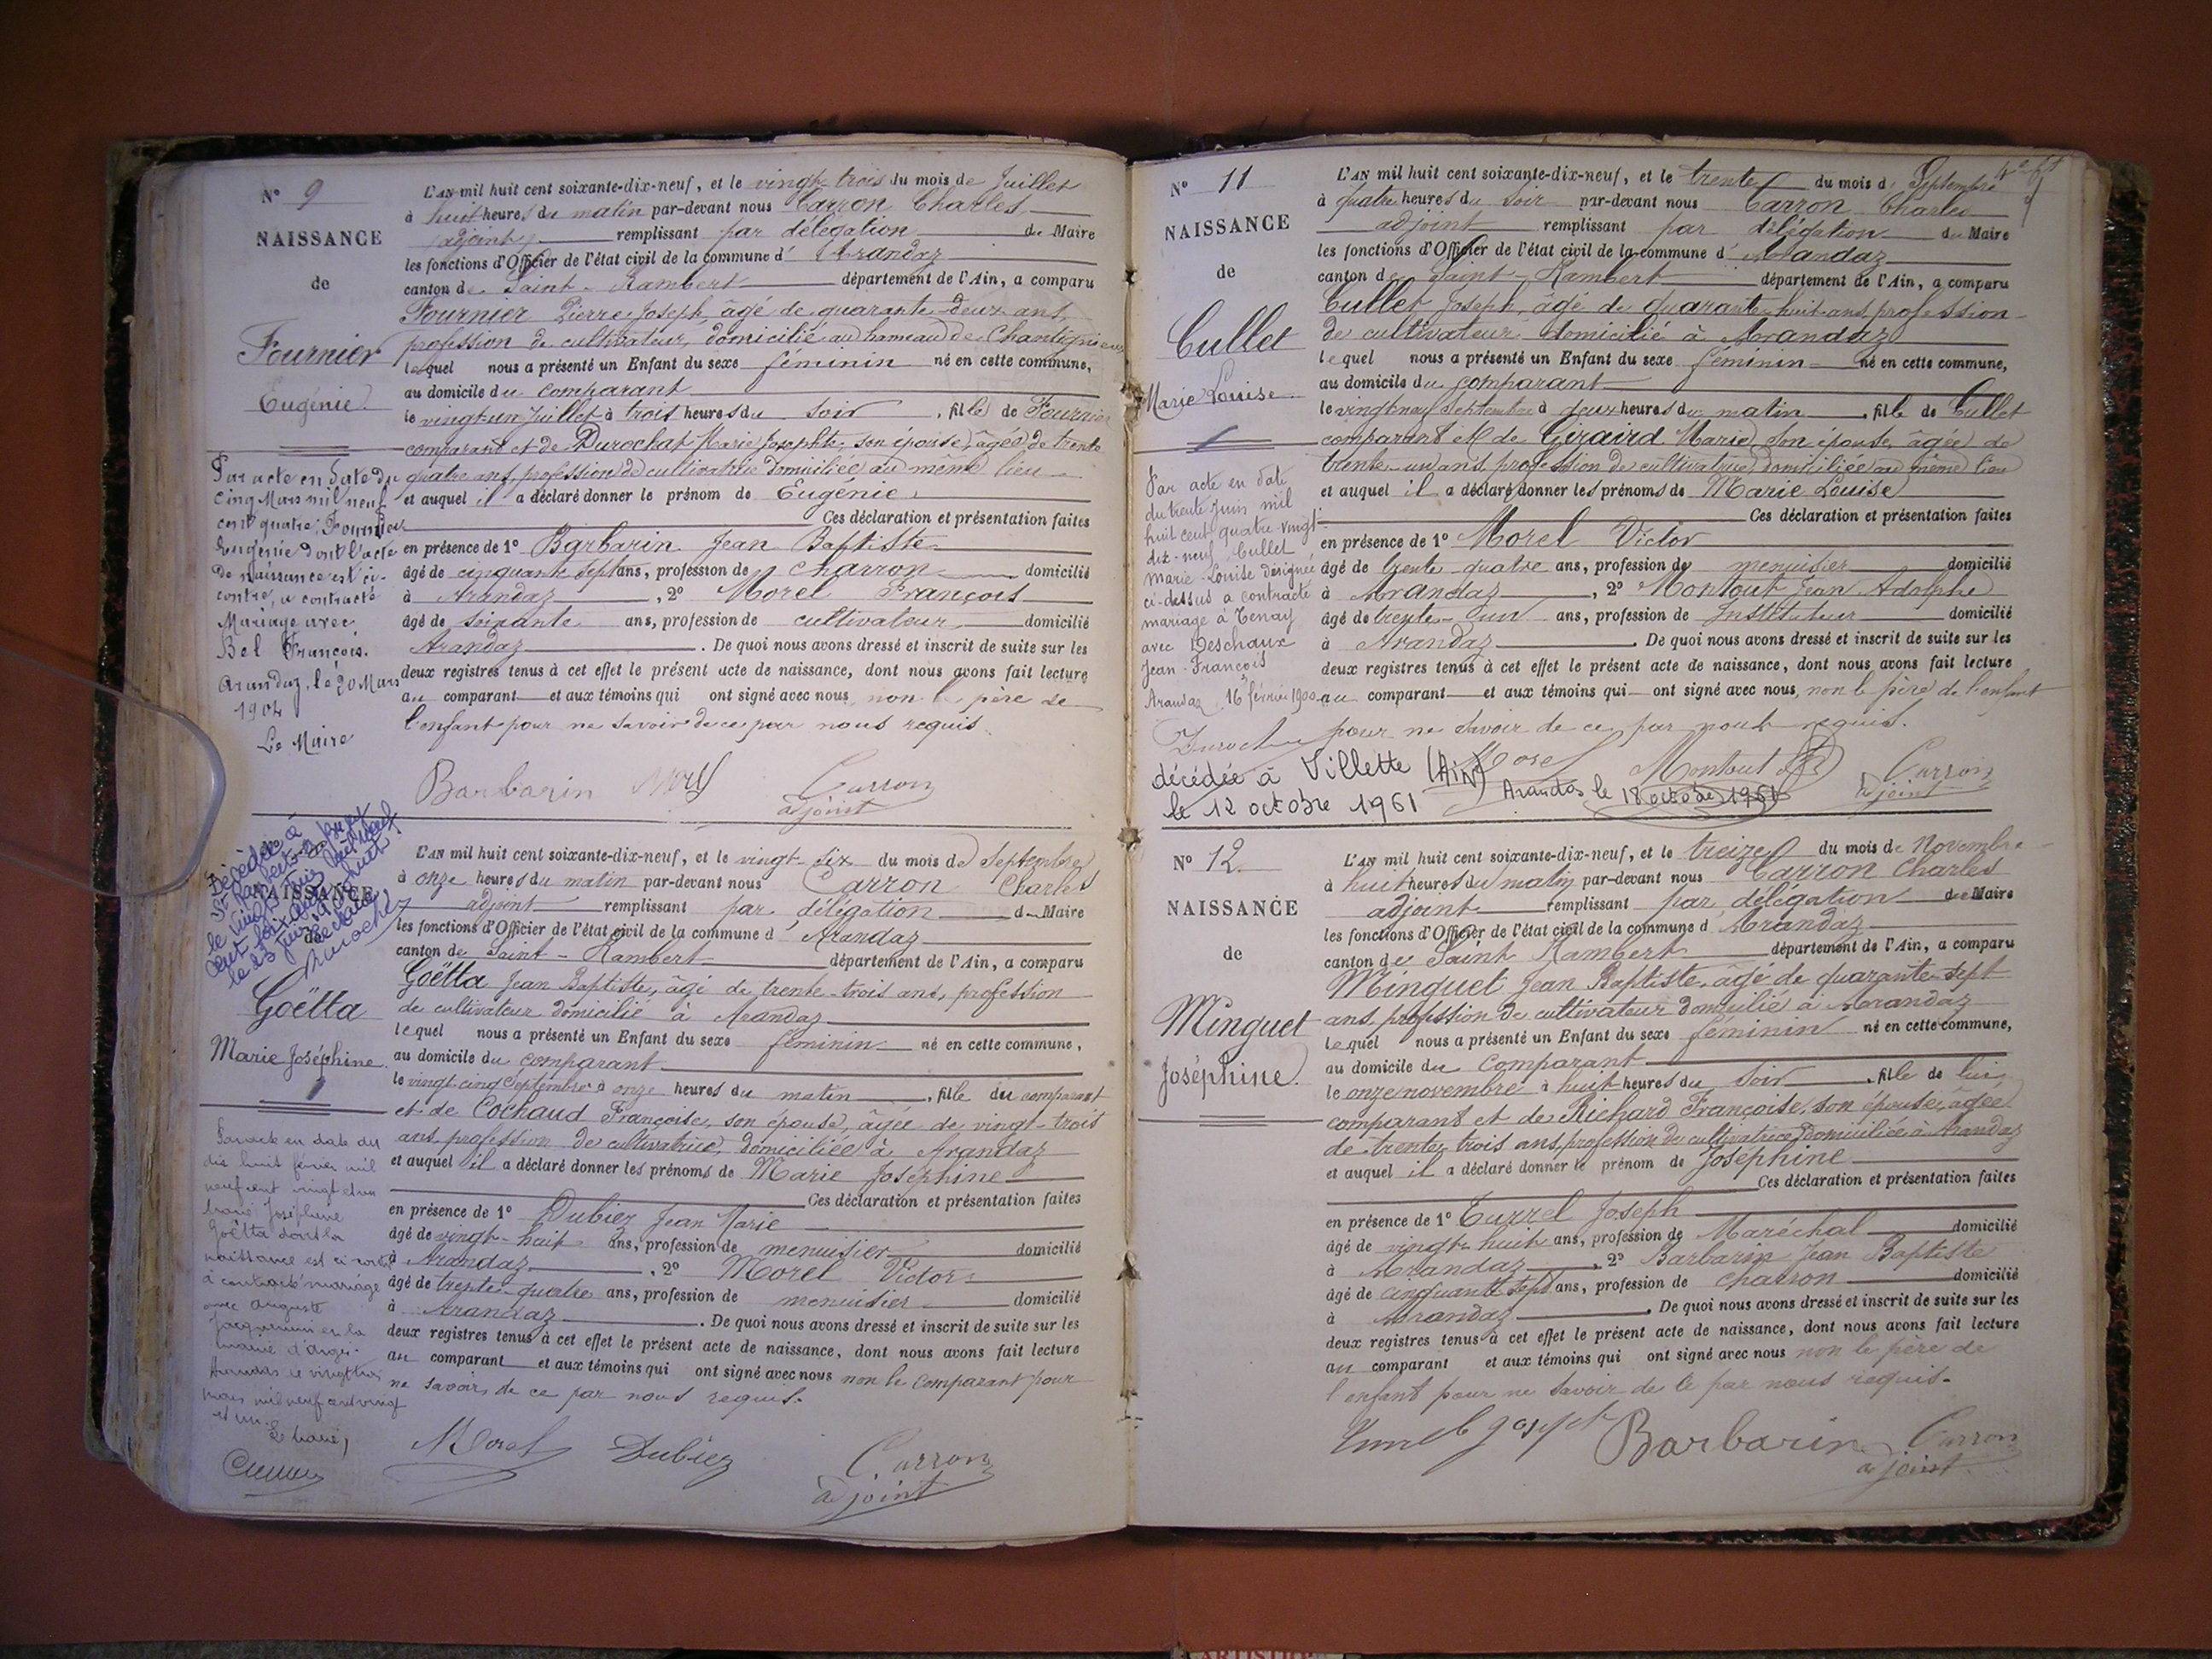 N° 9
NAISSANCE
de
Fournier
Eugénie
L'AN mil huit cent soixante-dix-neuf, et le vingt-trois du mois de Juillet
à huit heures du matin par-devant nous Carron Charles
adjoint remplissant par délégation du Maire
les fonctions d'Officier de l'état civil de la commune d'Arandaz
canton de Saint-Rambert département de l'Ain, a comparu
Fournier Pierre Joseph, âgé de quarante-deux ans,
profession de cultivateur, domicilié au hameau de
lequel nous a présenté un Enfant du sexe féminin né en cette commune,
au domicile du comparant
le vingt-un Juillet à trois heures du soir, fille de Fournier
comparant et de Durochat Marie Josephte, son épouse, âgée de trente
quatre ans, profession de cultivatrice domiciliée au même lieu
et auquel il a déclaré donner le prénom de Eugénie
Ces déclaration et présentation faites
en présence de 1° Barbarin Jean Baptiste
âgé de cinquante sept ans, profession de charron domicilié
à Arandaz, 2° Morel François
âgé de soixante ans, profession de cultivateur domicilié
Arandaz. De quoi nous avons dressé et inscrit de suite sur les
deux registres tenus à cet effet le présent acte de naissance, dont nous avons fait lecture
au comparant et aux témoins qui ont signé avec nous, non le père de
l'enfant pour ne savoir de ce par nous requis.
Barbarin Morel Carron
adjoint
Par acte en date du
cinq Mars mil neuf
cent quatre, Fournier
Eugénie dont l'acte
de naissance est ci-
contre, a contracté
Mariage avec
Bel François.
Arandaz, le 20 Mars
1904
Le Maire
Décédée à
St Rambert-en-Bugey
le vingt trois Juin mil neuf
cent soixante huit
le 23 Juin 1968
NAISSANCE
de
Goëtta
Marie Joséphine
L'AN mil huit cent soixante-dix-neuf, et le vingt-six du mois de Septembre
à onze heures du matin par-devant nous Carron Charles
adjoint remplissant par délégation du Maire
les fonctions d'Officier de l'état civil de la commune d'Arandaz
canton de Saint-Rambert département de l'Ain, a comparu
Goëtta Jean Baptiste, âgé de trente-trois ans, profession
de cultivateur domicilié à Arandaz
lequel nous a présenté un Enfant du sexe féminin né en cette commune,
au domicile du comparant
le vingt-cinq Septembre à onze heures du matin, fille du comparant
et de Cochaud Françoise, son épouse, âgée de vingt-trois
ans, profession de cultivatrice, domiciliée à Arandaz
et auquel il a déclaré donner les prénoms de Marie Joséphine
Ces déclaration et présentation faites
en présence de 1° Dubiez Jean Marie
âgé de vingt-huit ans, profession de menuisier domicilié
à Arandaz, 2° Morel Victor
âgé de trente-quatre ans, profession de menuisier domicilié
à Arandaz. De quoi nous avons dressé et inscrit de suite sur les
deux registres tenus à cet effet le présent acte de naissance, dont nous avons fait lecture
au comparant et aux témoins qui ont signé avec nous non le comparant pour
ne savoir, de ce par nous requis.
Morel Dubiez Carron
adjoint
Par acte en date du
dix huit février mil
neuf cent vingt et un
Marie Joséphine
Goëtta dont la
naissance est ci contre
a contracté mariage
avec Auguste
en la
mairie d'
Arandas le vingt trois
mars mil neuf cent vingt
et un.
Le Maire,
N° 11
NAISSANCE
de
Cullet
Marie Louise
L'AN mil huit cent soixante-dix-neuf, et le trente du mois de Septembre
à quatre heures du soir par-devant nous Carron Charles
adjoint remplissant par délégation du Maire
les fonctions d'Officier de l'état civil de la commune d'Arandaz
canton de Saint-Rambert département de l'Ain, a comparu
Cullet Joseph, âgé de quarante-huit ans, profession
de cultivateur domicilié à Arandaz
lequel nous a présenté un Enfant du sexe féminin né en cette commune,
au domicile du comparant
le vingt-neuf Septembre à deux heures du matin, fille de Cullet
comparant et de Giraird Marie, son épouse, âgée de
trente-un ans, profession de cultivatrice domiciliée au même lieu
et auquel il a déclaré donner les prénoms de Marie Louise
Ces déclaration et présentation faites
en présence de 1° Morel Victor
âgé de trente-quatre ans, profession de menuisier domicilié
à Arandaz, 2° Montout Jean Adolphe
âgé de trente-un ans, profession de Instituteur domicilié
à Arandaz. De quoi nous avons dressé et inscrit de suite sur les
deux registres tenus à cet effet le présent acte de naissance, dont nous avons fait lecture
au comparant et aux témoins qui ont signé avec nous, non le père de l'enfant
pour ne savoir de ce par nous requis.
Morel Montout Carron
adjoint
Par acte en date
du trente Juin mil
huit cent quatre-vingt-
dix-neuf, Cullet
Marie-Louise désignée
ci-dessus a contracté
mariage à Tenay
avec Deschaux
Jean-François
Arandaz, 16 février 1900
décédée à Villette (Ain)
le 12 octobre 1961
Arandas le 18 octobre 1961
N° 12
NAISSANCE
de
Minguet
Joséphine
L'AN mil huit cent soixante-dix-neuf, et le treize du mois de Novembre
à huit heures du matin par-devant nous Carron Charles
adjoint remplissant par délégation du Maire
les fonctions d'Officier de l'état civil de la commune d'Arandaz
canton de Saint Rambert département de l'Ain, a comparu
Minguet Jean Baptiste, âgé de quarante-sept
ans, profession de cultivateur domicilié à Arandaz
lequel nous a présenté un Enfant du sexe féminin né en cette commune,
au domicile du comparant
le onze novembre à huit heures du soir, fille de lui,
comparant et de Richard Françoise, son épouse, âgée
de trente-trois ans, profession de cultivatrice domiciliée à Arandaz
et auquel il a déclaré donner le prénom de Joséphine
Ces déclaration et présentation faites
en présence de 1° Turrel Joseph
âgé de vingt-huit ans, profession de Maréchal domicilié
à Arandaz, 2° Barbarin Jean Baptiste
âgé de cinquante sept ans, profession de charron domicilié
à Arandaz. De quoi nous avons dressé et inscrit de suite sur les
deux registres tenus à cet effet le présent acte de naissance, dont nous avons fait lecture
au comparant et aux témoins qui ont signé avec nous non le père de
l'enfant pour ne savoir de ce par nous requis.
Barbarin Carron
adjoint